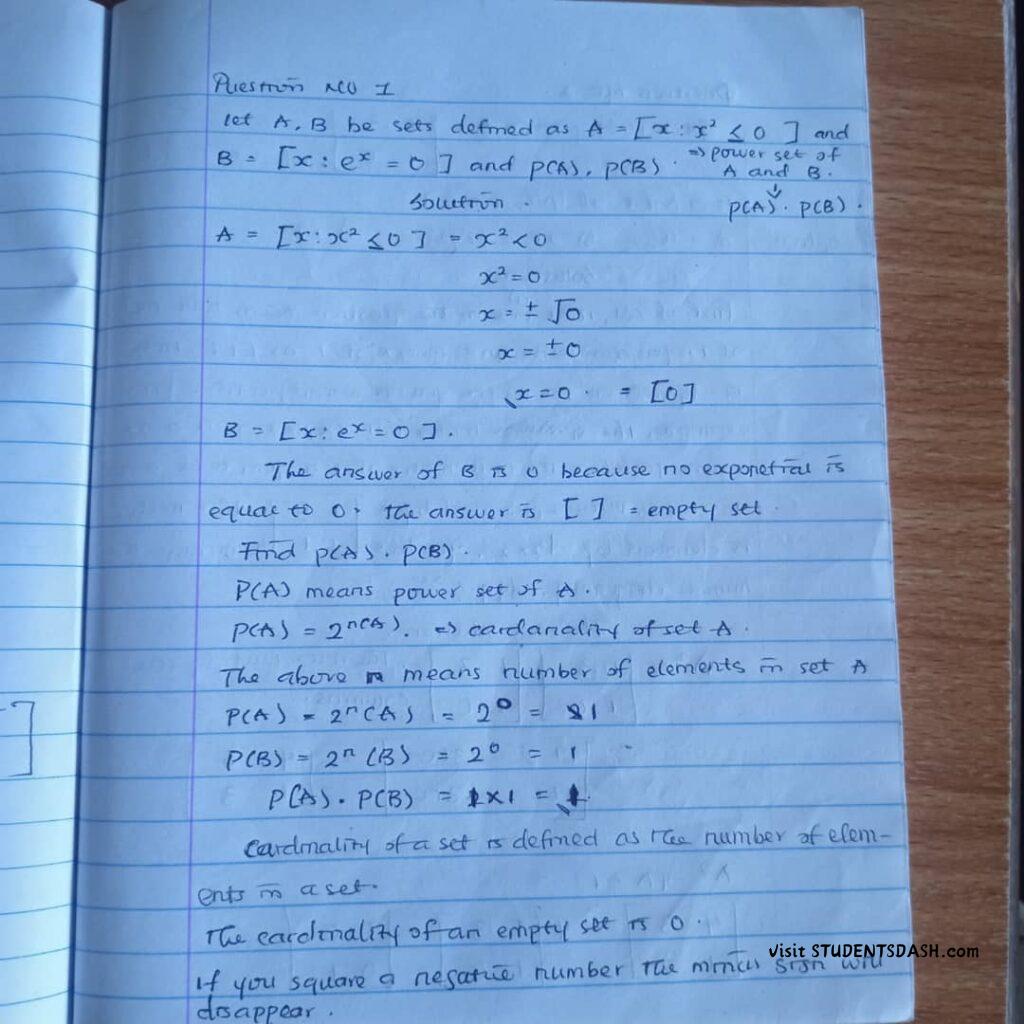 Question NO 1
Let A, B be sets defined as A = [x : x² ≤ 0 ] and
B = [x : eˣ = 0 ] and P(A), P(B) . ⇒ power set of
A and B.
Solution .
P(A) . P(B) .
A = [x : x² ≤ 0 ] = x² < 0
x² = 0
x = ± √0
x = ± 0
x = 0 . = [0]
B = [x : eˣ = 0 ] .
The answer of B is 0 because no exponetial is
equal to 0. the answer is [ ] = empty set .
Find P(A) . P(B) .
P(A) means power set of A .
P(A) = 2ⁿ⁽ᴬ⁾. ⇒ cardanality of set A .
The above n means number of elements in set A
P(A) = 2ⁿ(A) = 2⁰ = 1
P(B) = 2ⁿ (B) = 2⁰ = 1
P(A) . P(B) = 1 x 1 = 1
Cardinality of a set is defined as the number of elem-
ents in a set.
The cardinality of an empty set is 0 .
If you square a negative number the minus sign will
disappear .
visit STUDENTSDASH.com